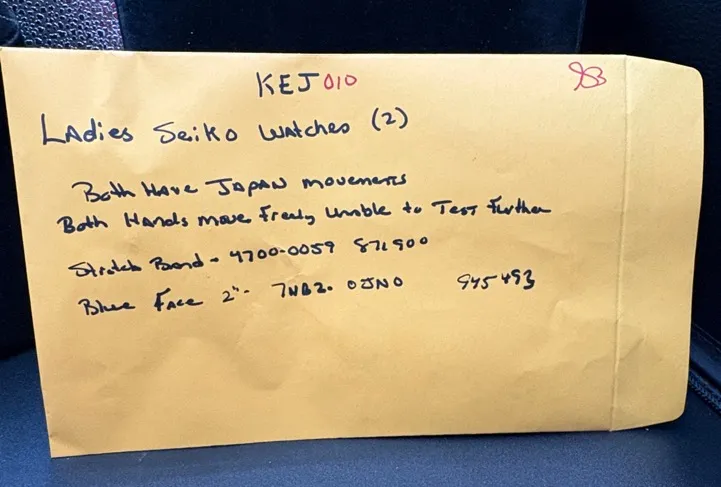 KEJ010
LAdies Seiko watches (2)
Both Have JAPAN movements
Both Hands move Freely Unable to Test Further
Stretch Band - 4700-0059 871900
Blue Face 2"- 7NB2. 0JN0 945493